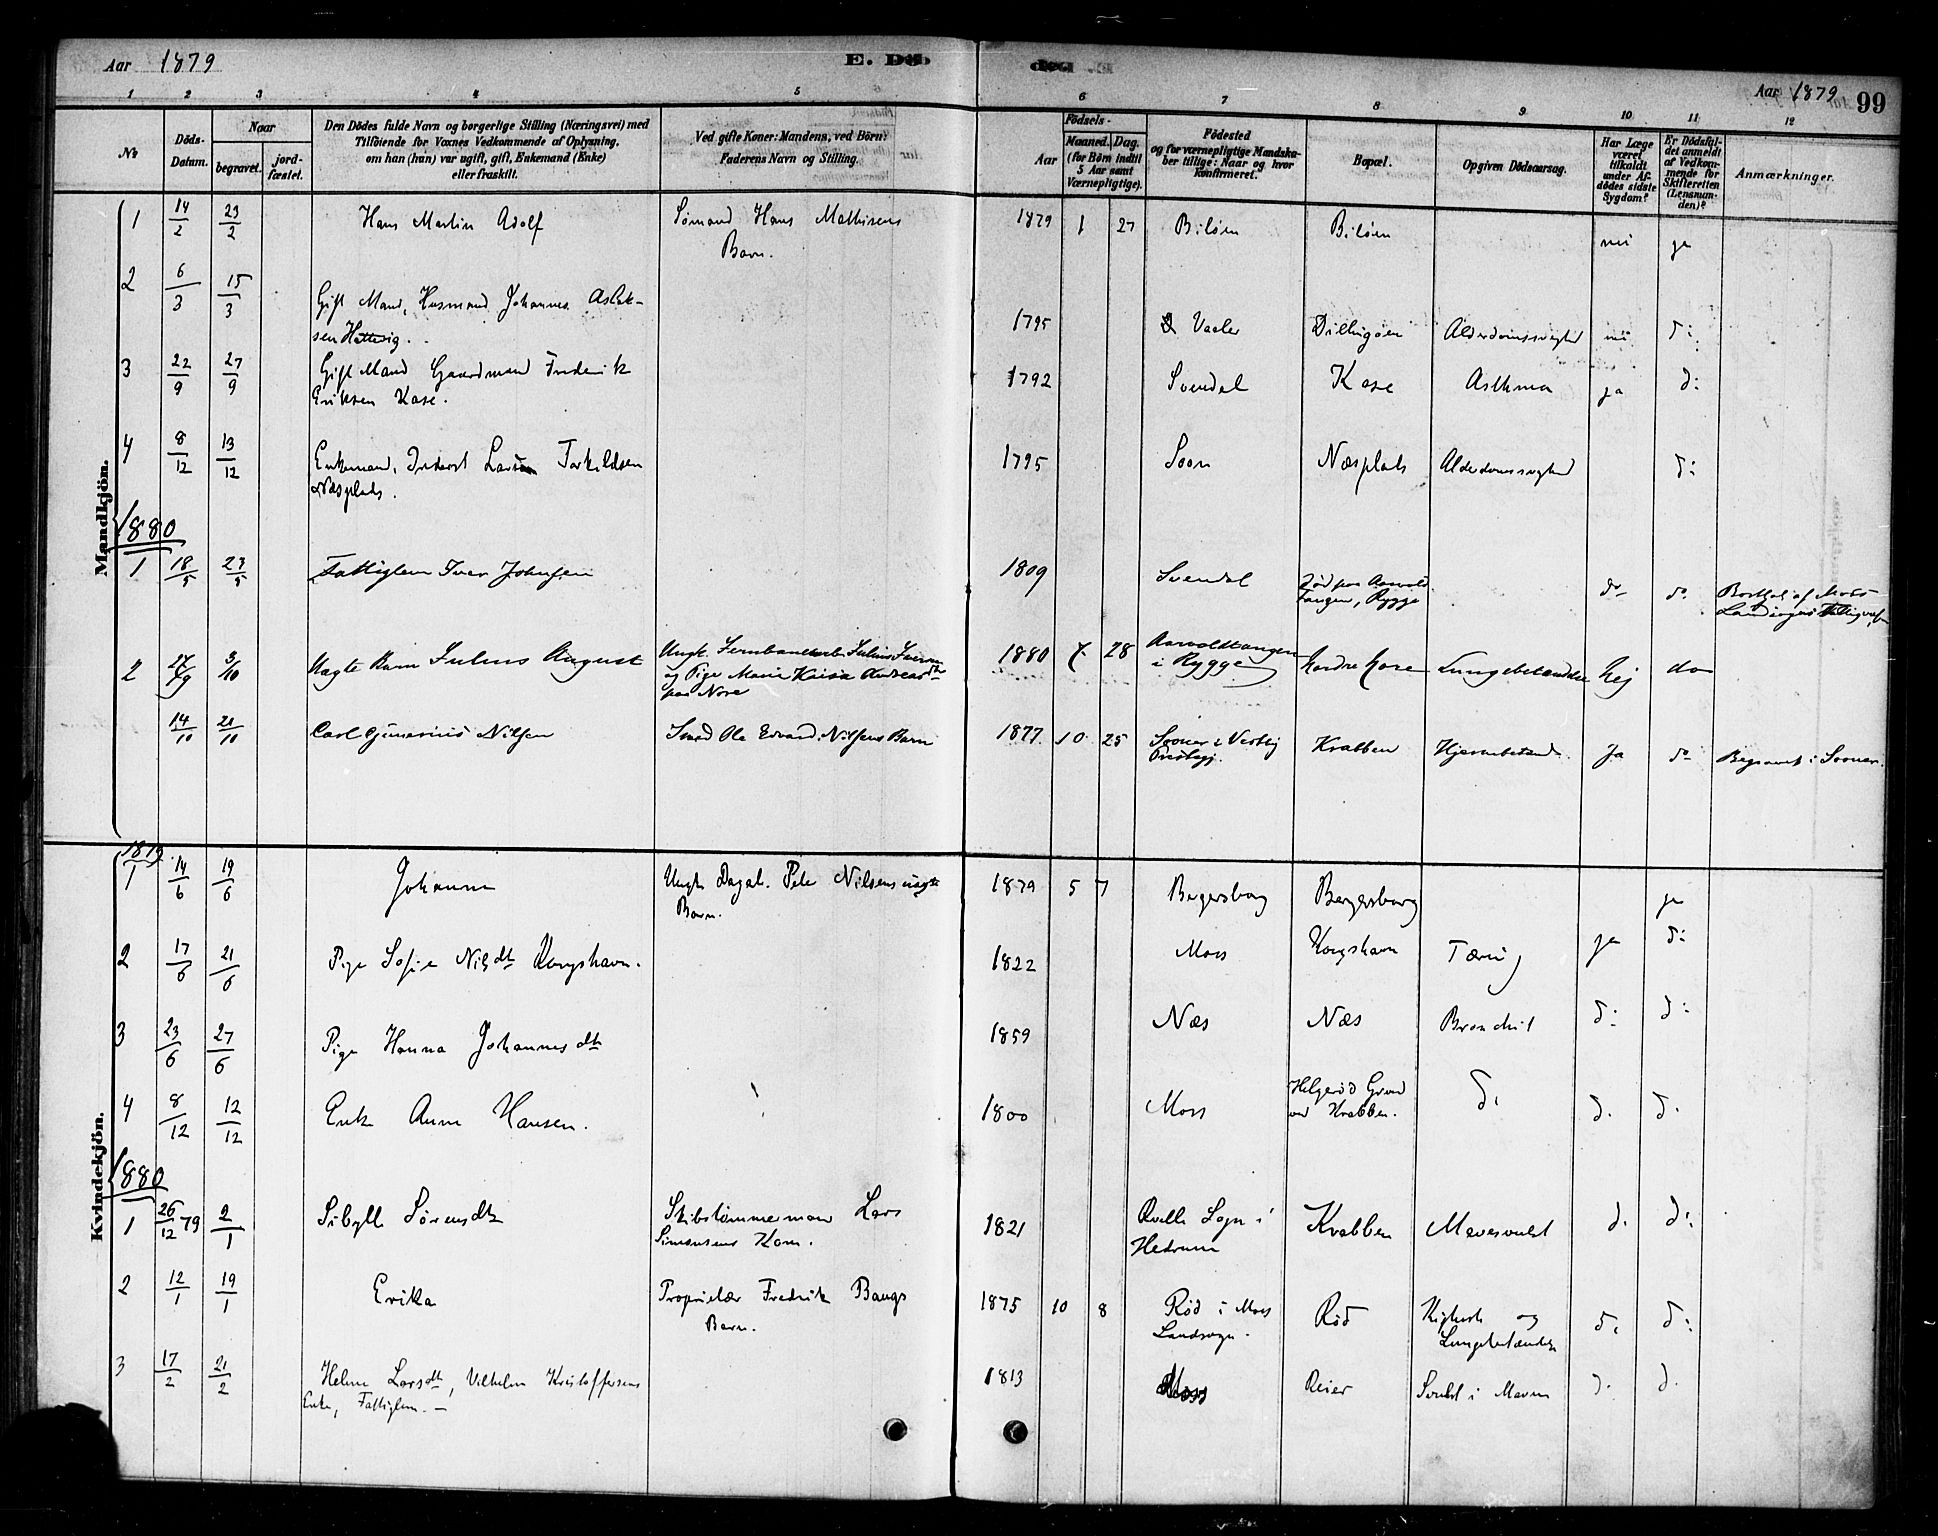 Aar 1879
E. Dö
Aar 1879 99
1 2 3 4 5 6 7 8 9 10 11 12
No
Döds-Datum.
Naar
begravet.
jord-fæstet.
Den Dödes fulde Navn og borgerlige Stilling (Næringsvei) med
Tilföiende for Voxnes Vedkommende af Oplysning,
om han (hun) var ugift, gift, Enkemand (Enke)
eller fraskilt.
Ved gifte Koner: Mandens, ved Börn:
Faderens Navn og Stilling.
Födsels-
Aar
Maaned. Dag.
(for Børn indtil
5 Aar samt
Værnepligtige).
Födested
og for værnepligtige Mandska-
ber tillige: Naar og hvor
Konfirmeret.
Bopæl.
Opgiven Dödsaarsag.
Har Læge
været
tilkaldt
under Af-
dödes sidste
Sygdom?
Er Dödsfal-
det anmeldt
af Vedkom-
mende for
Skifteretten
(Lensman-
den)?
Anmærkninger.
Mandkjön.
1 14/2 23/2 Hans Martin Adolf Sömand Hans Mathisens 1879 1 27 Bilöen Bilöen nei ja
Barn.
2 6/3 15/3 Gift Mand, Husmand Johannes Aslak-
sen Hattevig. 1795 Vaaler Dillingöen Alderdomssvaghed nei d:
3 22/9 27/9 Gift Mand Gaardmand Frederik 1792 Svendal Kase Asthma ja d:
Eriksen Kase.
4 8/12 13/12 Enkemand, Inderst Lars Torkildsen 1795 Soon Næsplads Alderdomssvaghed d:
Næsplads.
1880
1 18/5 23/5 Fattiglem Iver Johnsen 1809 Svendal Död paa Aarvold
Tangen, Rygge do do Borthsat af Moss
Landsogns
2 27/9 3/10 Uægte Barn Julius August Ungk. Jernbanearb. Julius
og Pige Maria Kaisa Andreasdtr
paa Nore 1880 7 28 Aarvoldtangen
i Rygge Nordre Kase Lungebetændelse Nej do
14/10 21/10 Carl Gunerius Nilsen Smed Ole Edvard Nilsens Barn 1877 10 25 Sooner i Vestby
Præstegj. Krabben Hjernebetænd. Ja do Begravet i Sooner.
Kvindekjön.
1879.
1 14/6 19/6 Johanne Ungk. Dagarb. Peter Nilsens uægte 1879 5 7 Bergersborg Bergersborg ja
Barn.
2 17/6 21/6 Pige Sofie Nilsdtr Kongshavn. 1822 Moss Kongshavn Tæring ja d:
3 23/6 27/6 Pige Hanna Johannesdtr 1859 Næs Næs Bronchit d: d:
4 8/12 12/12 Enke Anne Hansen. 1800 Moss Helgeröd Grund
ved Krabben. d: d. d.
1880
1 26/12 79 2/1 Sibylle Sörensdtr Skibstömmermand Lars 1821 Qvelle Sogn i
Simonsens Kone. Hedrum Krabben Mavesvulst d. d:
2 12/1 19/1 Erika Proprietær Fredrik Bangs 1875 10 8 Röd i Moss
Barn. Landsogn. Röd Kighoste og
Lungebetændelse d. d:
3 17/2 21/2 Helene Larsdtr, Vilhelm Kristoffersens 1813 Moss Reier Svulst i Maven d. d.
Enke, Fattiglem. —